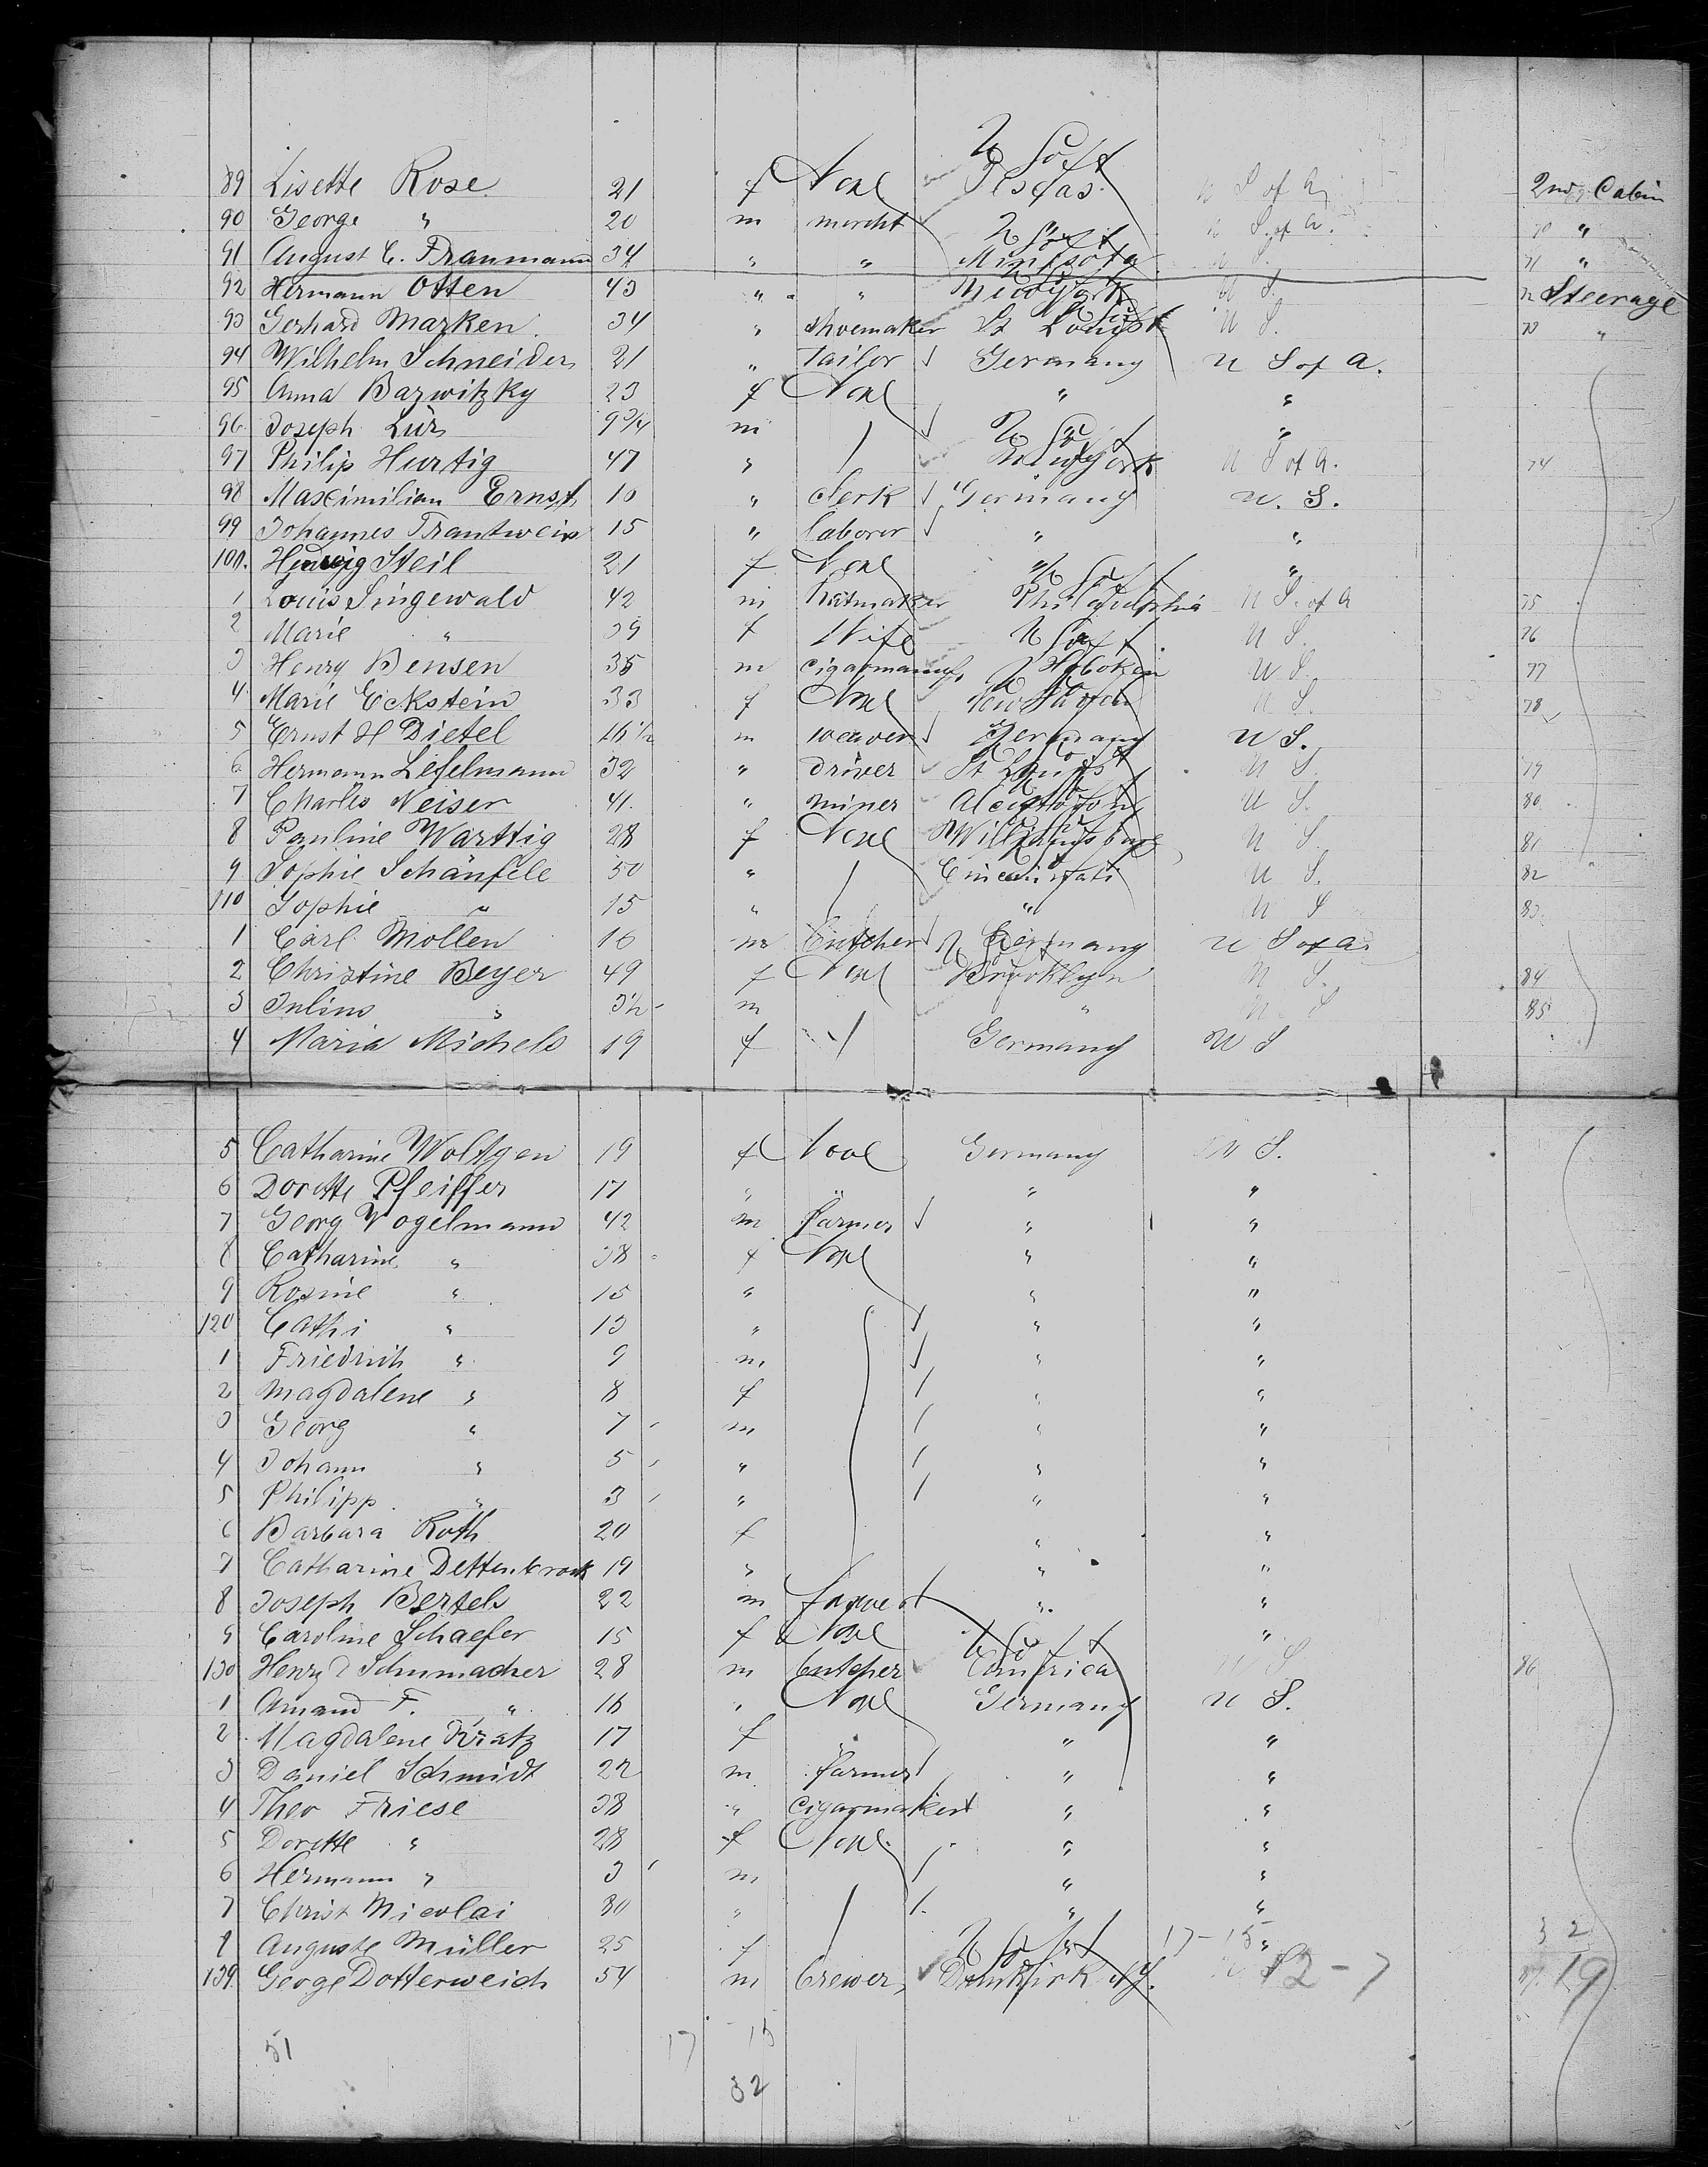 89 Lisette Rose 21 f None Texas U S of A 2nd Cabin
90 George " 20 m mercht " U S. of A. 70 "
91 August C. Traumann 34 " " Minesota U S. 71 "
92 Hermann Otten 43 " " New York U S. 72 Steerage
93 Gerhard Marken 34 " shoemaker St Louis U S. 73 "
94 Wilhelm Schneider 21 " Tailor Germany U S of A.
95 Anna Barwitzky 23 f None " "
96 Joseph Lürs 9 3/4 m " "
97 Philip Hurtig 47 " New York U S of A. 74
98 Maximilian Ernst 16 " Clerk Germany U. S.
99 Johannes Trautwein 15 " laborer " "
100. Hedwig Steil 21 f None " "
1 Louis Singewald 42 m Hatmaker Philadelphia U S. of A 75
2 Marie " 39 f Wife " U S. 76
3 Henry Bensen 35 m cigarmanuf. Hoboken U S. 77
4 Marie Eckstein 33 f None New Haven U S. 78
5 Ernst H Dietel 16 1/2 m weaver Germany U S.
6 Hermann Lefelmann 32 " Driver St Louis U S. 79
7 Charles Neiser 41 " miner U S. 80
8 Pauline Warttig 28 f None Williamsburg U S. 81
9 Sophie Schäufele 50 " Cincinnati U S. 82
110 Sophie " 15 " " U S 83
1 Carl Mollen 16 m Butcher Germany U S of A
2 Christine Beyer 49 f None Brooklyn U S. 84
3 Julius " 3 1/2 m " U S 85
4 Maria Michels 19 f Germany U S
5 Catharine Woltgen 19 f None Germany U S.
6 Dorette Pfeiffer 17 " " " "
7 Georg Vogelmann 42 m farmer " "
8 Catharine " 38 f None " "
9 Rosine " 15 " " "
120 Cathi " 13 " " "
1 Friedrich " 9 m " "
2 Magdalene " 8 f " "
3 Georg " 7 m " "
4 Johann " 5 " " "
5 Philipp " 3 " " "
6 Barbara Roth 20 f " "
7 Catharine Dettenbrock 19 " " "
8 Joseph Bertels 22 m farmer " "
9 Caroline Schaefer 15 f None "
130 Henry Schumacher 28 m butcher America U S 86
1 Amand F. " 16 " None Germany U S.
2 Magdalene Kratz 17 f " " "
3 Daniel Schmidt 22 m farmer " "
4 Theo Friese 38 " Cigarmaker " "
5 Dorette " 28 f None " "
6 Hermann " 3 m " "
7 Christ Nicolai 30 " " "
8 Auguste Müller 25 f " 17-15 32
139. George Dotterweich 54 m brewer Dunkirk N.Y. U S 12-7 87. 19
51 17 15
32